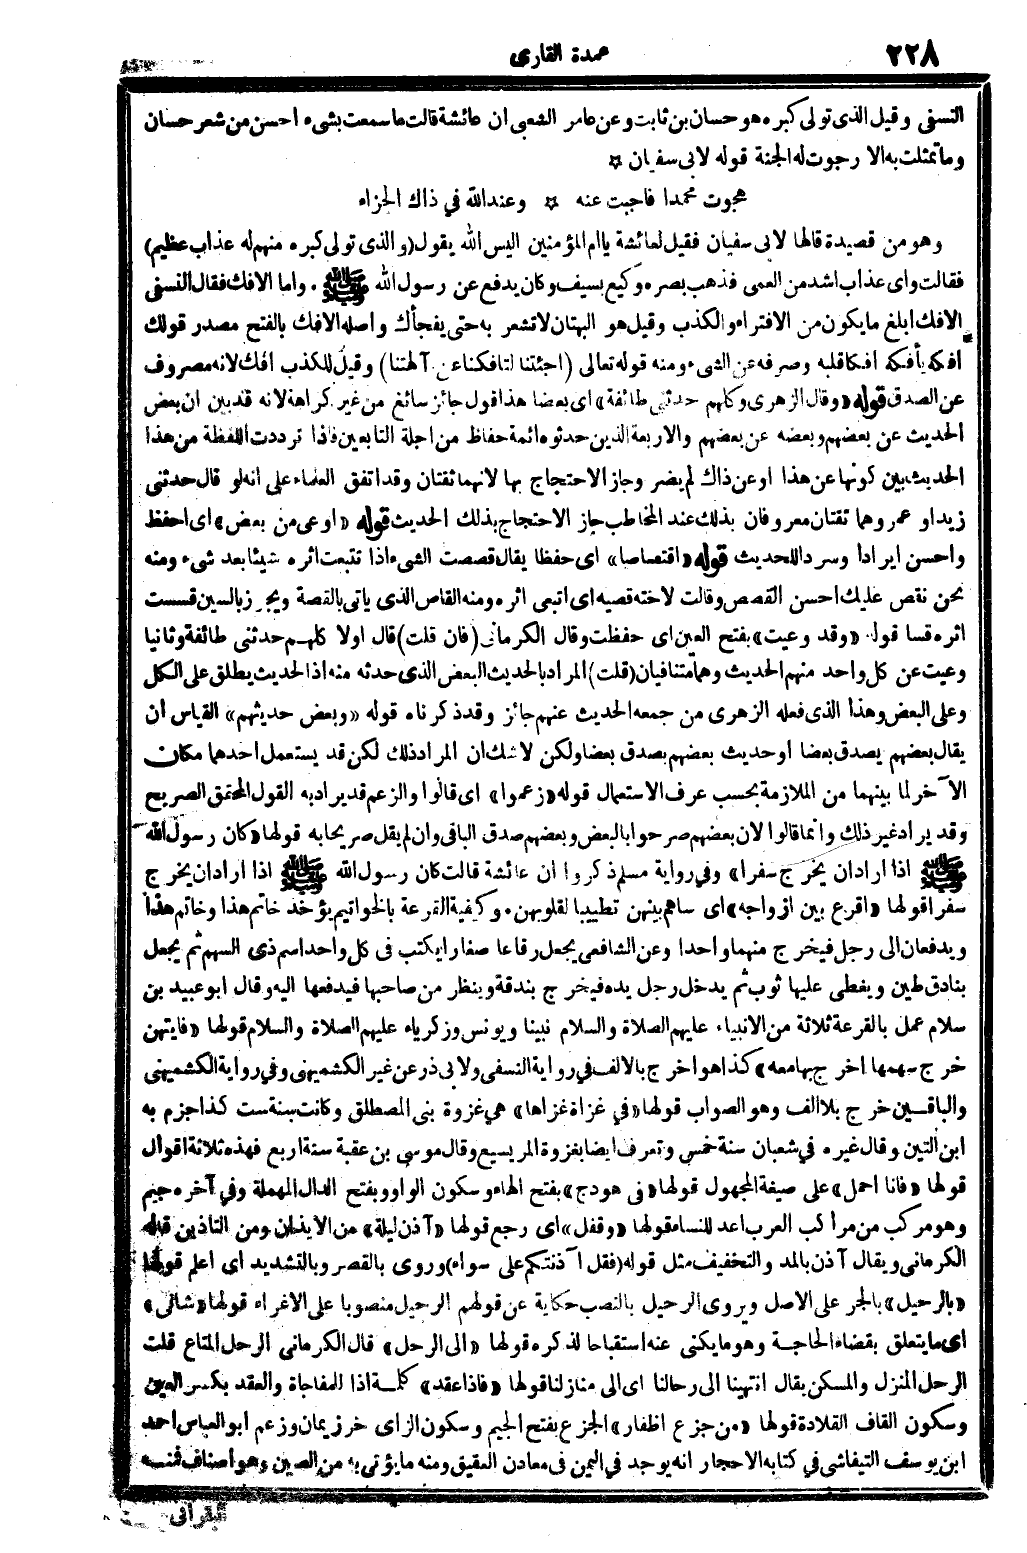 ٢٢٨
عمدة القارى
النسفى وقيل الذى تولى كبره هو حسان بن ثابت وعن عامر الشعبى ان عائشة قالت ما سمعت بشىء احسن من شعر حسان
وما تمثلت به الا رجوت له الجنة قوله لابى سفيان ۞
هجوت محمدا فاجبت عنه ۞ وعند الله في ذاك الجزاء
وهو من قصيدة قالها لابى سفيان فقيل لعائشة يا ام المؤمنين اليس الله يقول (والذى تولى كبره منهم له عذاب عظيم)
فقالت واى عذاب اشد من العمى فذهب بصره وكيع بسيف وكان يدفع عن رسول الله ﷺ . واما الافك فقال النسفى
الافك ابلغ ما يكون من الافتراء والكذب وقيل هو البهتان لا تشعر به حتى يفجأك واصله الأفك بالفتح مصدر قولك
افكه يأفكه افكا قلبه وصرفه عن الشىء ومنه قوله تعالى (اجئتنا لتافكنا عن آلهتنا) وقيل للكذب افك لانه مصروف
عن الصدق قوله «وقال الزهرى وكلهم حدثنى طائفة» اى بعضا هذا قول جائز سائغ من غير كراهة لانه قد بين ان بعض
الحديث عن بعضهم وبعضه عن بعضهم والاربعة الذين حدثوه ائمة حفاظ من اجلة التابعين فاذا ترددت اللفظة من هذا
الحديث بين كونها عن هذا او عن ذاك لم يضر وجاز الاحتجاج بها لانهما ثقتان وقد اتفق العلماء على انه لو قال حدثنى
زيد او عمرو وهما ثقتان معروفان بذلك عند المخاطب جاز الاحتجاج بذلك الحديث قوله «اوعى من بعض» اى احفظ
واحسن ايرادا وسرد اللحديث قوله «اقتصاصا» اى حفظا يقال قصصت الشىء اذا تتبعت اثره شيئا بعد شىء ومنه
نحن نقص عليك احسن القصص وقالت لاخته قصيه اى اتبعى اثره ومنه القاص الذى ياتى بالقصة ويجوز بالسين قسست
اثره قسا قوله «وقد وعيت» بفتح العين اى حفظت وقال الكرمانى (فان قلت) قال اولا كلهم حدثنى طائفة وثانيا
وعيت عن كل واحد منهم الحديث وهما متنافيان (قلت) المراد بالحديث البعض الذى حدثه منه اذ الحديث يطلق على الكل
وعلى البعض وهذا الذى فعله الزهرى من جمعه الحديث عنهم جائز وقد ذكرناه قوله «وبعض حديثهم» القياس ان
يقال بعضهم يصدق بعضا او حديث بعضهم يصدق بعضا ولكن لا شك ان المراد ذلك لكن قد يستعمل احدهما مكان
الآخر لما بينهما من الملازمة بحسب عرف الاستعمال قوله «زعموا» اى قالوا والزعم قد يراد به القول المحقق الصريح
وقد يراد غير ذلك وانما قالوا لان بعضهم صرحوا بالبعض وبعضهم صدق الباقى وان لم يقل صريحا به قولها «كان رسول الله
ﷺ اذا اراد ان يخرج سفرا» وفي رواية مسلم ذكروا ان عائشة قالت كان رسول الله ﷺ اذا اراد ان يخرج
سفرا قولها «اقرع بين ازواجه» اى ساهم بينهن تطييبا لقلوبهن . وكيفية القرعة بالخواتيم يؤخذ خاتم هذا وخاتم هذا
ويدفعان الى رجل فيخرج منهما واحدا وعن الشافعى يجعل رقاعا صغارا يكتب في كل واحد اسم ذى السهم ثم يجعل
بنادق طين ويغطى عليها ثوب ثم يدخل رجل يده فيخرج بندقة وينظر من صاحبها فيدفعها اليه وقال ابو عبيد بن
سلام عمل بالقرعة ثلاثة من الانبياء عليهم الصلاة والسلام نبينا ويونس وزكرياء عليهم الصلاة والسلام قولها «فايتهن
خرج سهمها اخرج بها معه» كذا هو اخرج بالالف في رواية النسفى ولابى ذر عن غير الكشميهنى وفي رواية الكشميهنى
والباقين خرج بلا الف وهو الصواب قولها «في غزاة غزاها» هي غزوة بنى المصطلق وكانت سنة ست كذا جزم به
ابن التين وقال غيره في شعبان سنة خمس وتعرف ايضا بغزوة المريسيع وقال موسى بن عقبة سنة اربع فهذه ثلاثة اقوال
قولها «فانا احمل» على صيغة المجهول قولها «في هودج» بفتح الهاء وسكون الواو وبفتح الدال المهملة وفي آخره جيم
وهو مركب من مراكب العرب اعد للنساء قولها «وقفل» اى رجع قولها «آذن ليلة» من الايذان ومن التاذين قاله
الكرمانى ويقال آذن بالمد والتخفيف مثل قوله (فقل آذنتكم على سواء) وروى بالقصر وبالتشديد اى اعلم قولها
«بالرحيل» بالجر على الاصل ويروى الرحيل بالنصب حكاية عن قولهم الرحيل منصوبا على الاغراء قولها «شانى»
اى ما يتعلق بقضاء الحاجة وهو ما يكنى عنه استقباحا لذكره قولها «الى الرحل» قال الكرمانى الرحل المتاع قلت
الرحل المنزل والمسكن يقال انتهينا الى رحالنا اى الى منازلنا قولها «فاذا عقد» كلمة اذا للمفاجاة والعقد بكسر العين
وسكون القاف القلادة قولها «من جزع اظفار» الجزع بفتح الجيم وسكون الزاى خرز يمان وزعم ابو العباس احمد
ابن يوسف التيفاشى في كتابه الاحجار انه يوجد في اليمن في معادن العقيق ومنه ما يؤتى به من الصين وهو أصناف فمنسه
البقرانى